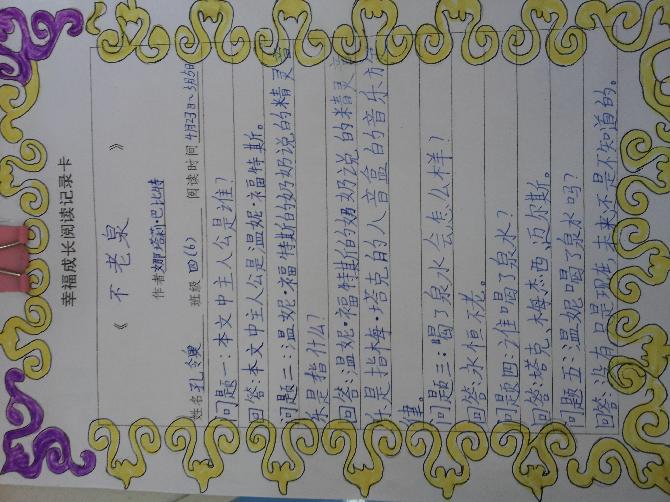 幸福成长阅读记录卡
《 不老泉 》
作者娜塔莉·巴比特
姓名 孔令奥 班级 四(6) 阅读时间 4月23日~5月6日
问题一:本文中主人公是谁?
回答:本文中主人公是温妮·福特斯。
问题二:温妮·福特斯的奶奶说的精灵音
乐是指什么?
回答:温妮·福特斯的奶奶说的精灵音
乐是指梅·塔克的八音盒的音乐
问题三:喝了泉水会怎么样?
回答:永恒不老。
问题四:谁喝了泉水?
回答:塔克、梅、杰西、迈尔斯。
问题五:温妮喝了泉水吗?
回答:没有,只是现在,未来不是不知道的。